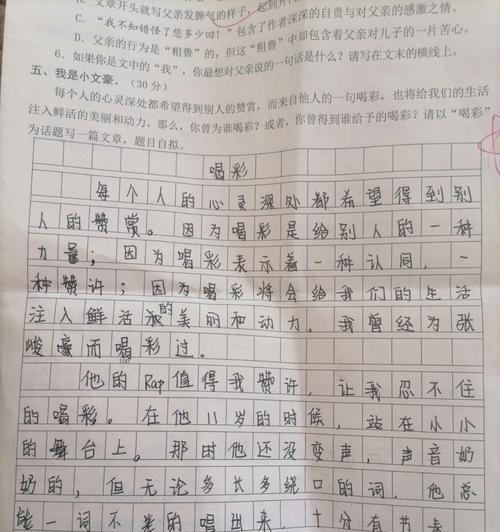 B. 文章开头就写父亲发脾气的样子，起到
C. "我不知错怪了您多少回！"包含了作者深深的自责与对父亲的感激之情。
D. 父亲的行为是"粗鲁"的，但这"粗鲁"中却包含着父亲对儿子的一片苦心。
6. 如果你是文中的"我"，你最想对父亲说的一句话是什么？请写在文末的横线上。
五、我是小文豪。（30分）
每个人的心灵深处都希望得到别人的赞赏，而来自他人的一句喝彩，也将给我们的生活
注入鲜活的美丽和动力。那么，你曾为谁喝彩？或者，你曾得到谁给予的喝彩？请以"喝彩"
为话题写一篇文章，题目自拟。
喝彩
每个人的心灵深处都希望得到别
人的赞赏。因为喝彩是给别人的一种
力量；因为喝彩表示着一种认同，一
种赞许；因为喝彩将会给我们的生活
注入鲜活的美丽和动力。我曾经为张
峻豪而喝彩过。
100
他的Rap值得我赞许，让我忍不住
的喝彩。在他11岁的时候，站在小小
的舞台上。那时他还没变声，声音奶
奶的，但无论多长多绕口的词，他总
能一词不差的唱出来
十分有节奏